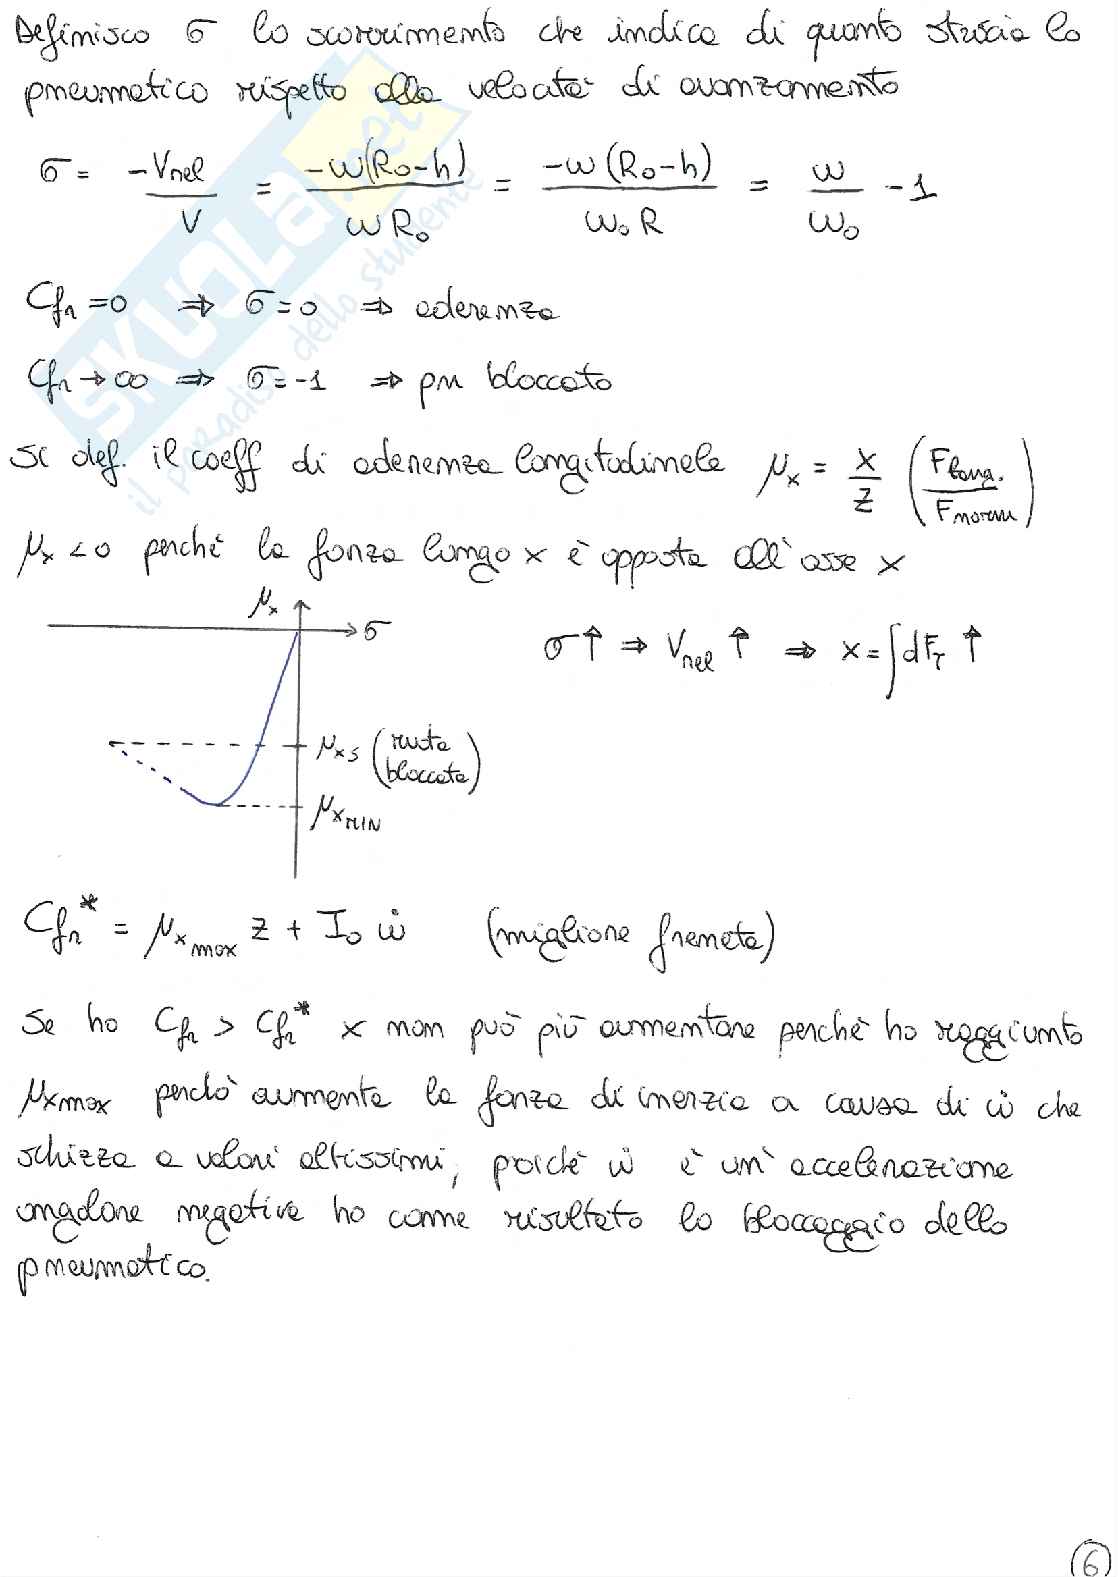 Definisco σ lo scorrimento che indica di quanto striscia lo
pneumatico rispetto alla velocità di avanzamento
σ = -Vrel / V = -ω(R₀-h) / ωR₀ = -ω(R₀-h) / ω₀R = ω / ω₀ - 1
Cfr = 0 ⇒ σ = 0 ⇒ aderenza
Cfr → ∞ ⇒ σ = -1 ⇒ pn bloccato
Si def. il coeff di aderenza longitudinale μx = X / Z (F long. / F norm)
μx < 0 perché la forza lungo x è opposta all'asse x
μx
σ
σ↑ ⇒ Vrel ↑ ⇒ x = ∫dFT ↑
μxs (ruota bloccata)
μx MIN
Cfr* = μx max Z + I₀ ω̇ (migliore frenata)
Se ho Cfr > Cfr* x non può più aumentare perché ho raggiunto
μxmax perciò aumenta la forza di inerzia a causa di ω̇ che
schizza a valori altissimi, poiché ω̇ è un'accelerazione
angolare negativa ho come risultato lo bloccaggio dello
pneumatico.
6
SKUOLA.net
il paradiso dello studente